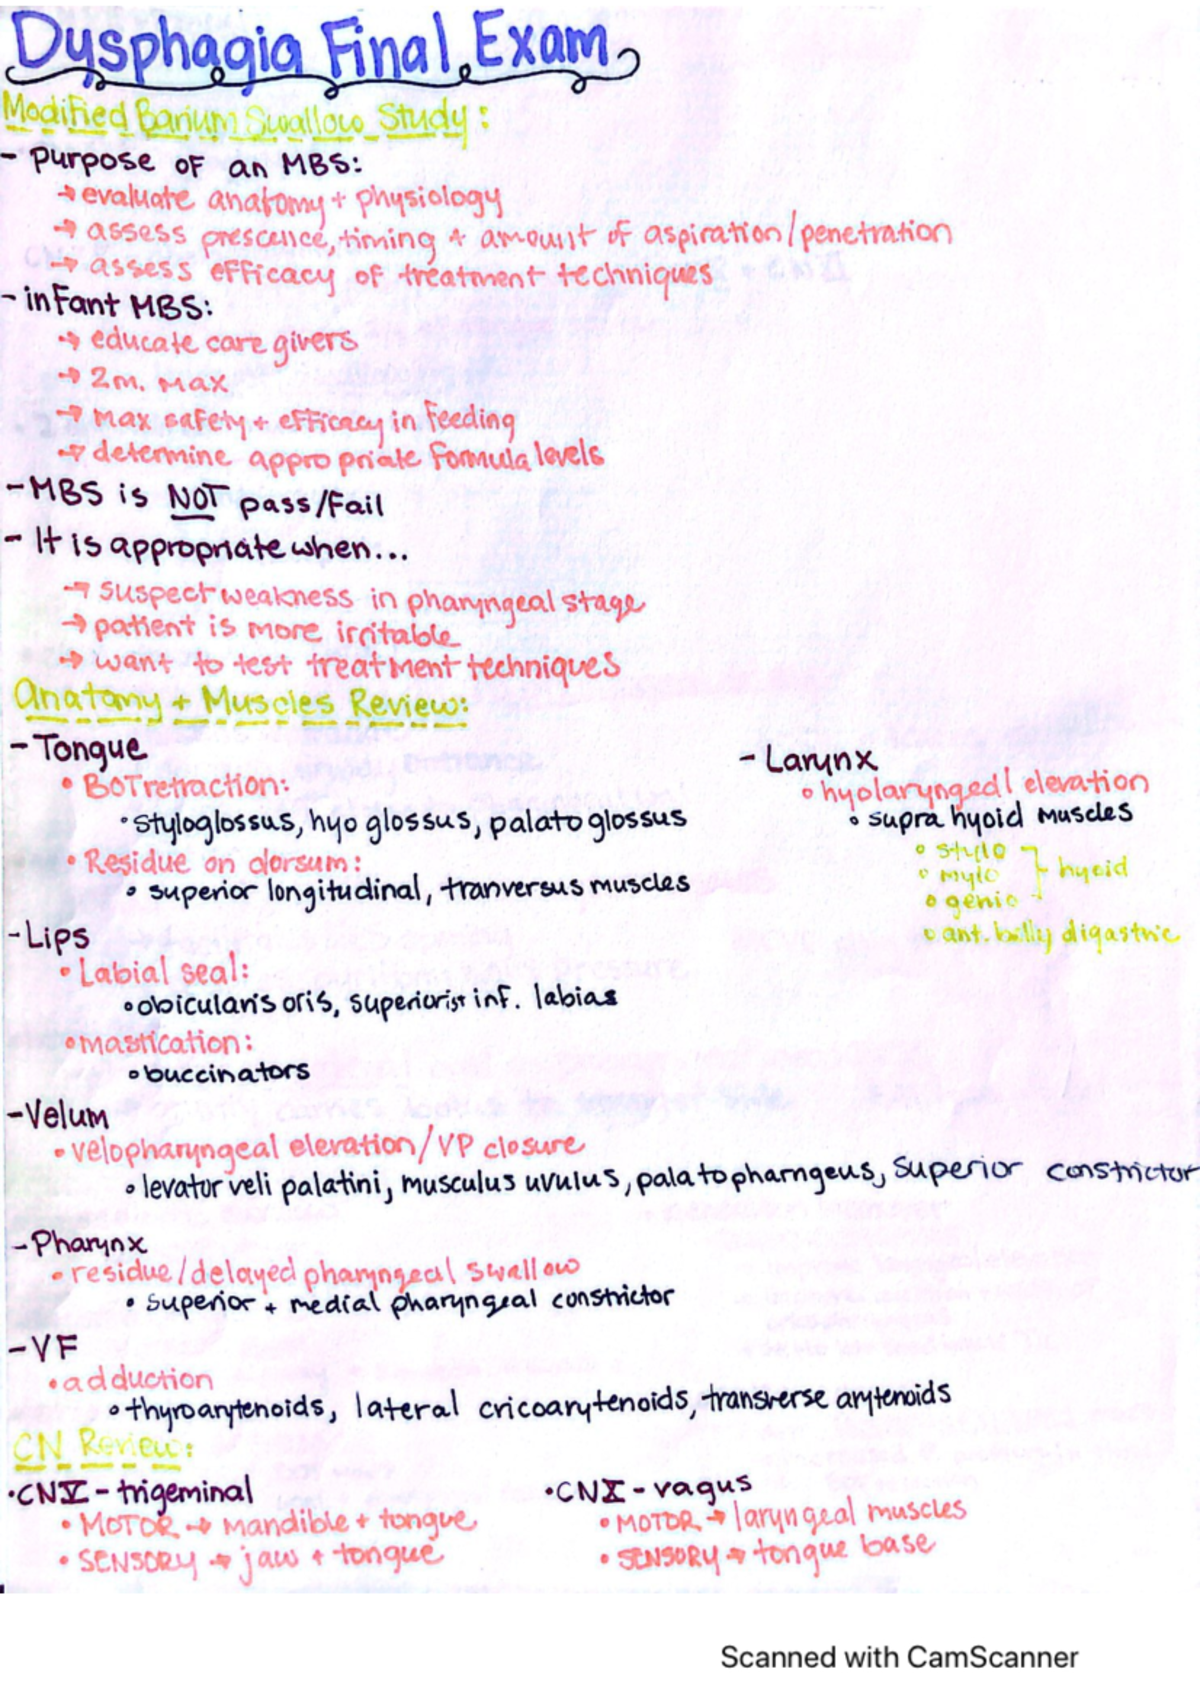 Dysphagia Final Exam
Modified Barium Swallow Study:
- Purpose of an MBS:
→ evaluate anatomy + physiology
→ assess prescence, timing + amount of aspiration/penetration
→ assess efficacy of treatment techniques
- infant MBS:
→ educate care givers
→ 2m. max
→ max safety + efficacy in feeding
→ determine appropriate formula levels
- MBS is NOT pass/fail
- It is appropriate when...
→ suspect weakness in pharyngeal stage
→ patient is more irritable
→ want to test treatment techniques
Anatomy + Muscles Review:
- Tongue
• BOT retraction:
• styloglossus, hyoglossus, palatoglossus
• Residue on dorsum:
• superior longitudinal, tranversus muscles
- Lips
• Labial seal:
• obicularis oris, superiorist inf. labias
• mastication:
• buccinators
- Velum
• velopharyngeal elevation/VP closure
• levator veli palatini, musculus uvulus, palatopharngeus, superior constrictor
- Pharynx
• residue/delayed pharyngeal swallow
• superior + medial pharyngeal constrictor
- VF
• adduction
• thyroarytenoids, lateral cricoarytenoids, transverse arytenoids
- Larynx
• hyolaryngeal elevation
• supra hyoid muscles
• stylo
• mylo
• genio
hyoid
• ant. billy digastric
CN Review:
• CN V - trigeminal
• MOTOR → mandible + tongue
• SENSORY → jaw + tongue
• CN X - vagus
• MOTOR → laryngeal muscles
• SENSORY → tongue base
Scanned with CamScanner